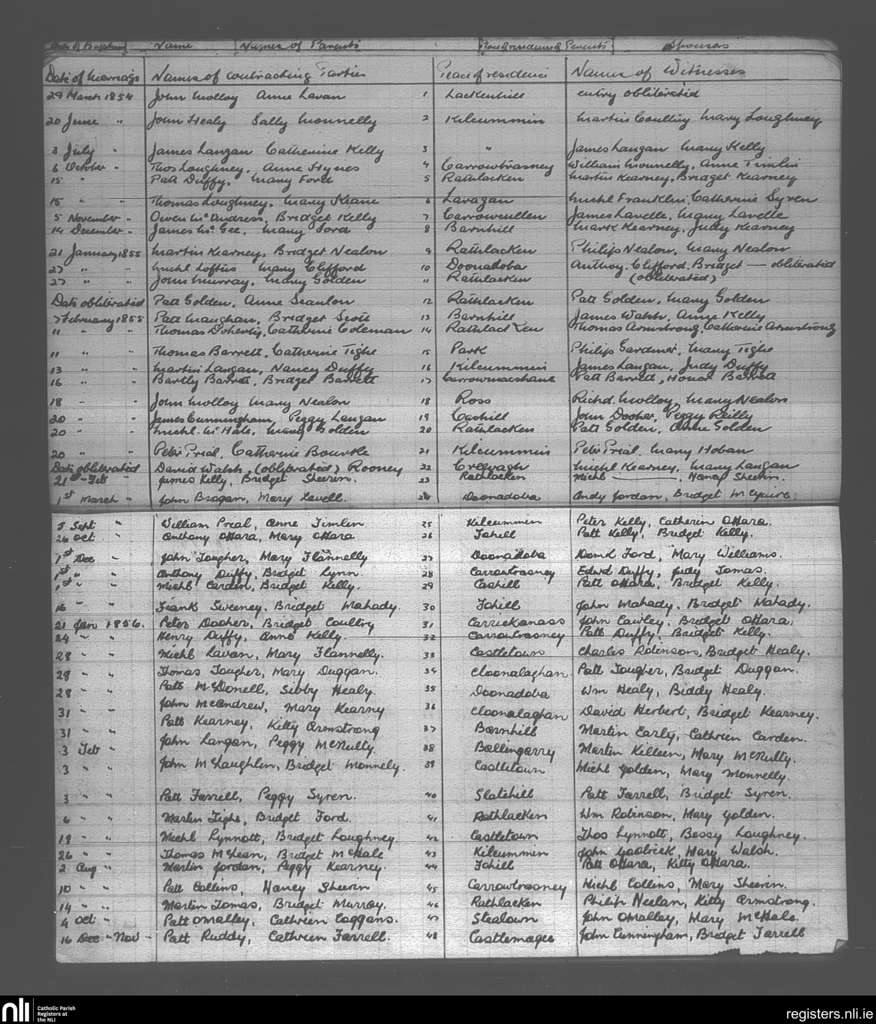 Date of Baptism Name Names of Parents Place of residence of Parents Sponsors
Date of marriage Names of contracting Parties Place of residence Names of Witnesses
29 March 1854 John Molloy Anne Lavan 1 Lackenhill entry obliterated
20 June " John Healy Sally Munnelly 2 Kilcummin Martin Coultry Mary Loughney
3 July " James Langan Catherine Kelly 3 " James Langan Mary Kelly
6 October " Thos Loughney, Anne Hynes 4 Carrowtrasney William Munnelly, Anne Timlin
15 " Patt Duffy, Mary Ford 5 Rathlacken Martin Kearney, Bridget Kearney
15 " Thomas Loughney, Mary Keane 6 Lavagan Michl Franklin, Catherine Syren
5 November " Owen McAndress, Bridget Kelly 7 Carrowcullen James Lavelle, Mary Lavelle
14 December " James McGee, Mary 8 Barnhill Mark Kearney, Judy Kearney
21 January 1855 Martin Kearney, Bridget Nealon 9 Rathlacken Philip Nealon, Mary Nealon
27 " " Michl Loftus Mary Clifford 10 Doonadoba Anthoy. Clifford, Bridget — obliterated
27 " " John Murray, Mary Golden 11 Rathlacken (obliterated)
Date obliterated Patt Golden, Anne Scanlon 12 Rathlacken Patt Golden, Mary Golden
7 February 1855 Patt Maughan, Bridget Scott 13 Barnhill James Walsh, Anne Kelly
11 " Thomas Doherty, Catherine Coleman 14 Rathlacken Thomas Armstrong, Catherine Armstrong
11 " Thomas Barrett, Catherine Tighe 15 Park Philip Gardiner, Mary Tighe
13 " Martin Langan, Nancy Duffy 16 Kilcummin James Langan, Judy Duffy
16 " Bartly Barrett, Bridget Barrett 17 Patt Barrett, Honor Barrett
18 " John Molloy Mary Nealon 18 Ross Richd. Molloy, Mary Nealon
20 " James Cunningham, Peggy Langan 19 Cashill John Doocher, Peggy Reilly
20 " Michl. McHale, Mary Golden 20 Rathlacken Patt Golden, Anne Golden
20 " Peter Prial, Catherine Bourke 21 Kilcummin Peter Prial, Mary Hoban
Date obliterated David Walsh, (obliterated) Rooney 22 Creevagh Michl Kearney, Mary Langan
21st Feb " James Kelly, Bridget Sheerin. 23 Rathlacken Michl ———, Nancy Sheerin.
1st March " John Brogan, Mary Lavell. 24 Doonadoba Andy Jordan, Bridget McGuire.
5 Sept " William Preal, Anne Timlin 25 Kilcummin Peter Kelly, Catherin OHara.
26 Oct " Anthony OHara, Mary OHara 26 Fohill Patt Kelly, Bridget Kelly.
1st Dec " John Tougher, Mary Flannelly 27 Doonadoba Domk Ford, Mary Williams.
1st " " Anthony Duffy, Bridget Lynn. 28 Carrowtrasney Edwd Duffy, Judy Tomas.
1st " " Michl Carden, Bridget Kelly. 29 Cashill Patt OHara, Bridget Kelly.
16 " " Frank Sweeney, Bridget Mahady. 30 Fohill John Mahady, Bridget Mahady.
21 Jan 1856. Peter Doocher, Bridget Coultry 31 Carrickanass John Cawley, Bridget OHara.
24 " " Henry Duffy, Anne Kelly. 32 Carrowtrasney Patt Duffy, Bridget Kelly.
28 " " Michl Lavan, Mary Flannelly. 33 Castletown Charles Robinson, Bridget Healy.
28 " " Thomas Tougher, Mary Duggan. 34 Cloonalaghan Patt Tougher, Bridget Duggan.
28 " " Patt McDonell, Sibby Healy. 35 Doonadoba Wm Healy, Biddy Healy.
31 " " John McAndrew, Mary Kearney 36 Cloonalaghan David Herbert, Bridget Kearney.
31 " " Patt Kearney, Kitty Armstrong 37 Barnhill Martin Early, Cathrien Carden.
3 Feb " John Langan, Peggy McNulty. 38 Ballingarry Martin Killeen, Mary McNulty.
3 " " John McLaughlin, Bridget Monnely. 39 Castletown Michl Golden, Mary Monnelly.
3 " " Patt Farrell, Peggy Syren. 40 Slatehill Patt Farrell, Bridget Syren.
6 " " Martin Tighe, Bridget Ford. 41 Rathlacken Wm Robinson, Mary Golden.
19 " " Michl Lynnott, Bridget Loughney. 42 Castletown Thos Lynnott, Bessy Loughney.
26 " " Thomas McLean, Bridget McHale 43 Kilcummin John Mary Walsh.
2 Aug " Martin Jordan, Peggy Kearney. 44 Fohill Patt OHara, Kitty OHara.
10 " " Patt Collins, Nancy Sheerin 45 Carrowtrasney Michl Collins, Mary Sheerin.
14 " " Martin Tomas, Bridget Murray. 46 Rathlacken Philip Neelan, Kitty Armstrong.
4 Oct " Patt OMalley, Cathrien Coggans. 47 Stealown John OMalley, Mary McHale.
16 Dec - Nov - Patt Ruddy, Cathrien Farrell. 48 Castlemagee John Cunningham, Bridget Farrell
nli Catholic Parish Registers at the NLI
registers.nli.ie